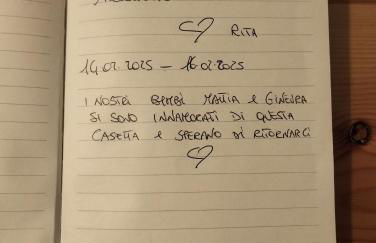 ♡ RITA
14.02.2025 – 16.02.2025
I NOSTRI BIMBI MATTIA E GINEVRA
SI SONO INNAMORATI DI QUESTA
CASETTA E SPERANO DI RITORNARCI
♡